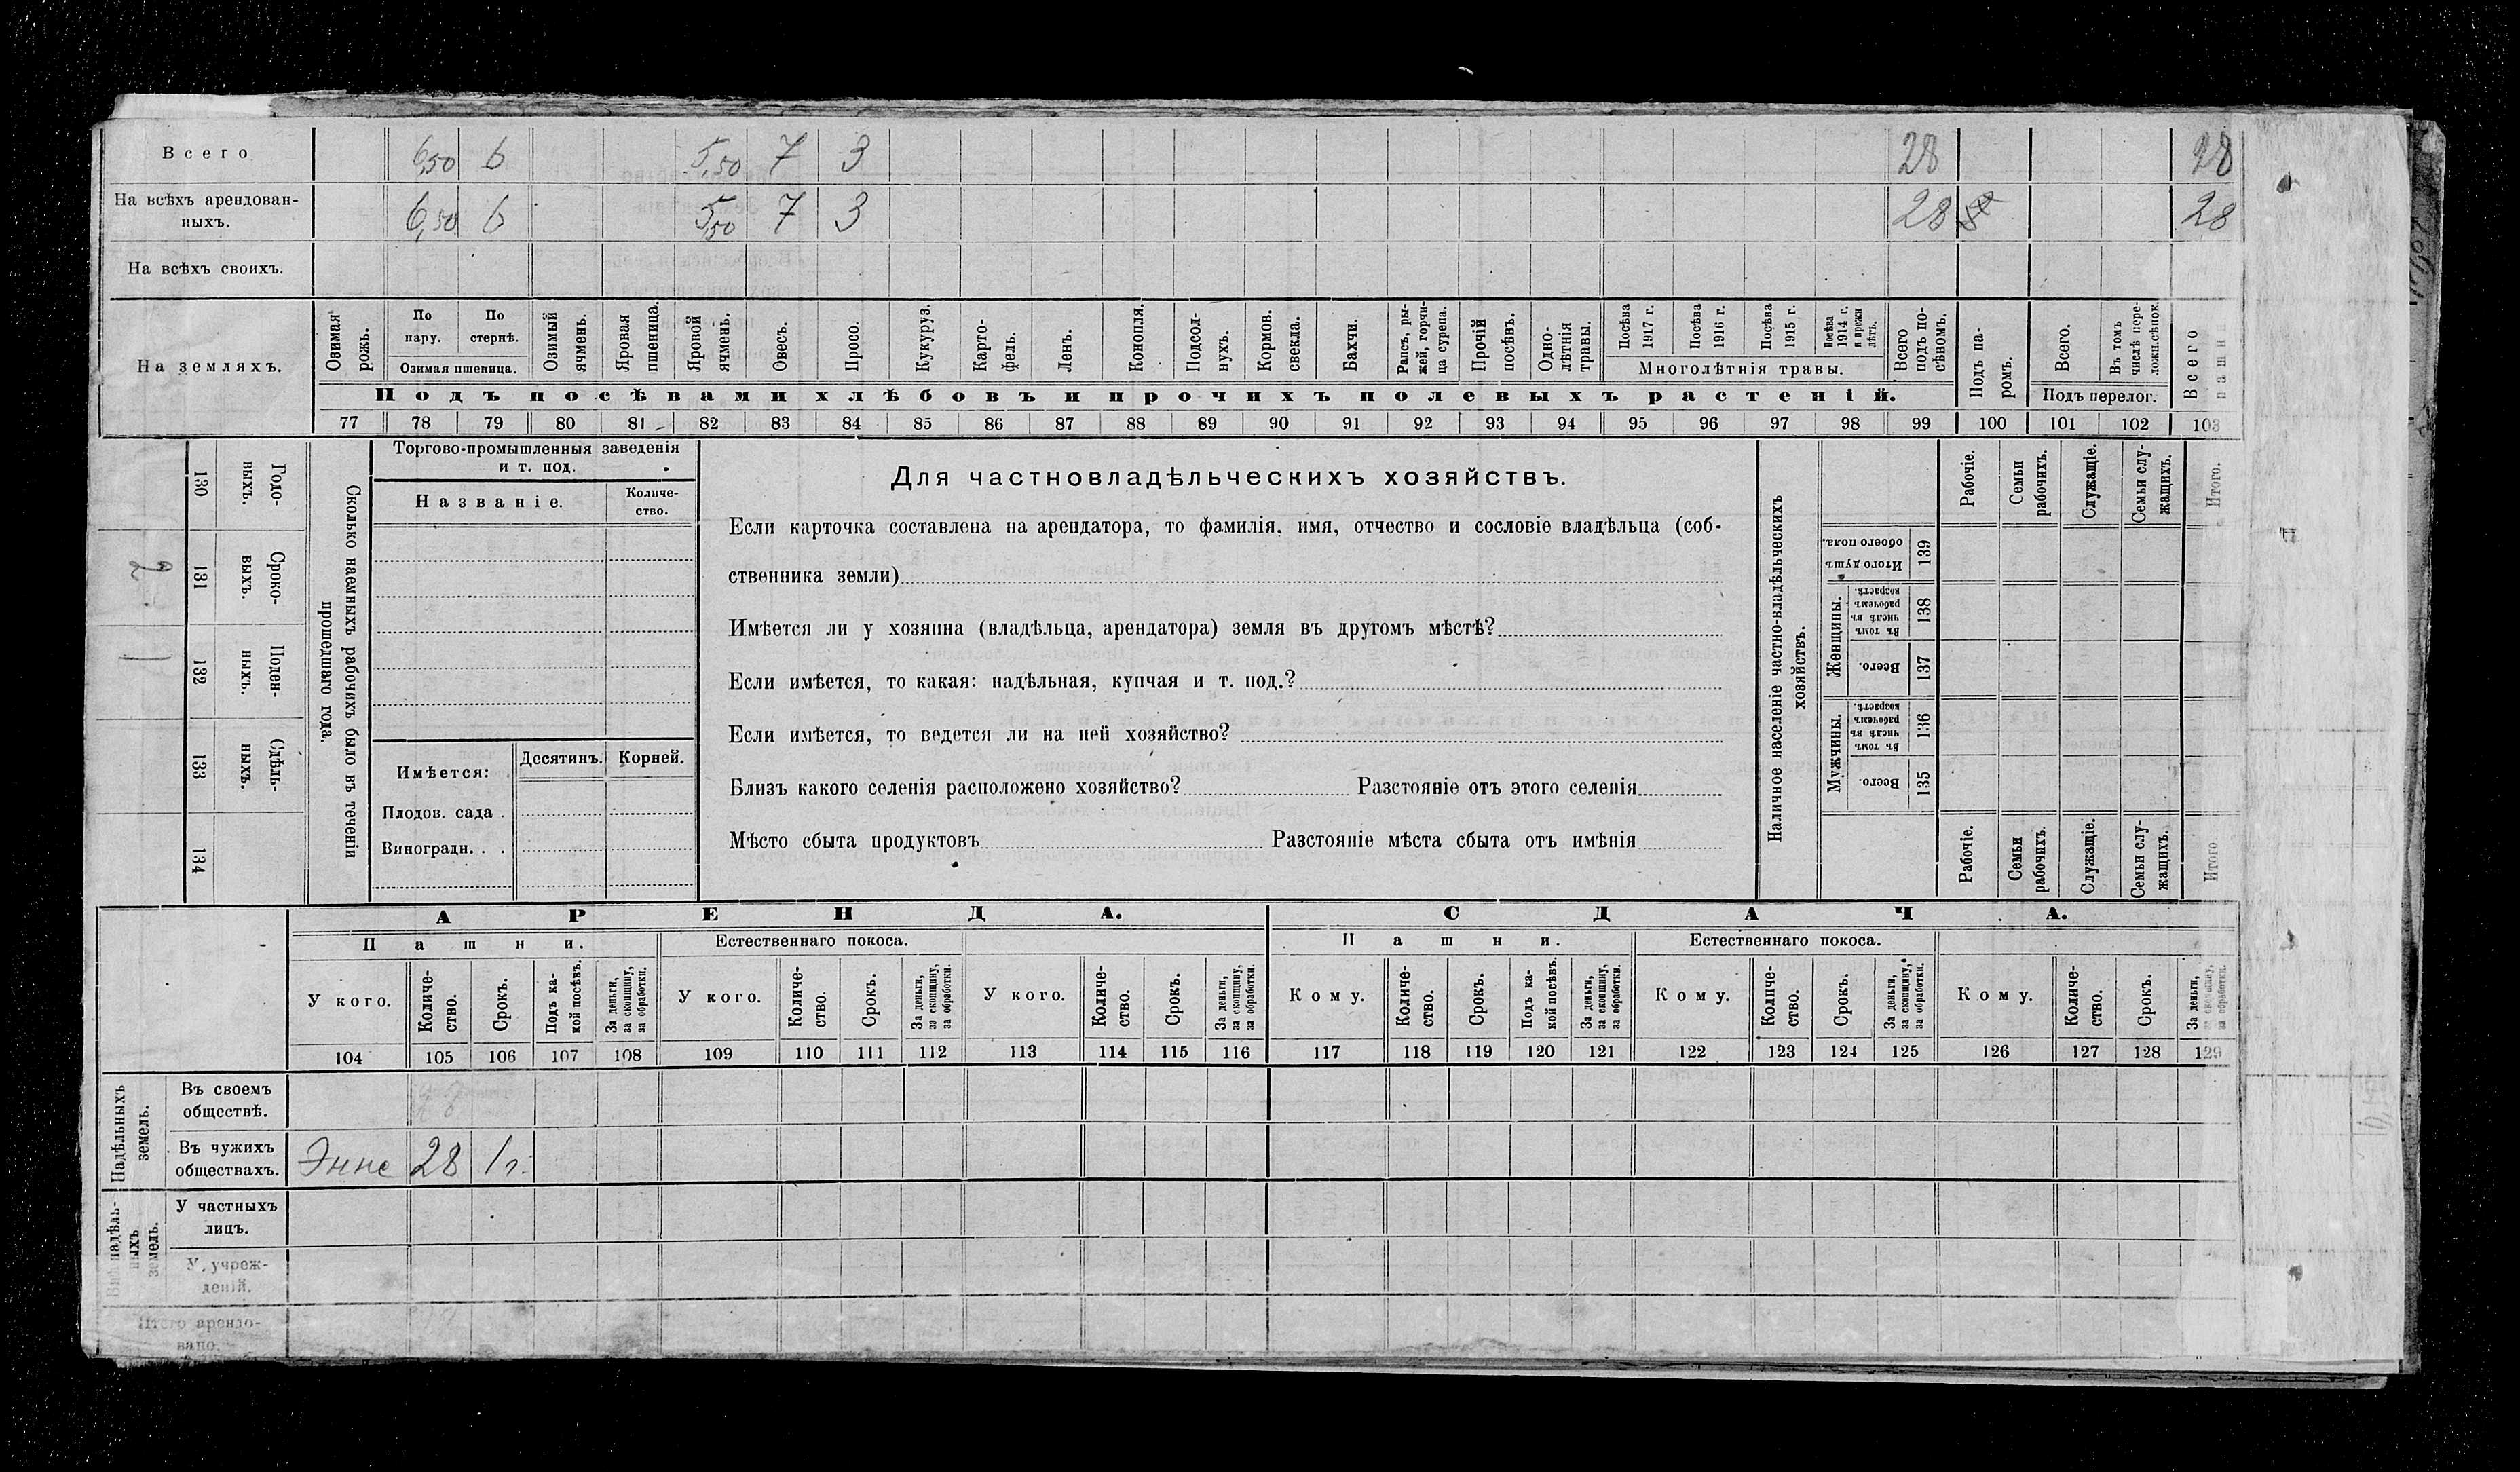 Всего 6,50 6 5,50 7 3 28 28
На всѣхъ арендован-
ныхъ. 6,50 6 5,50 7 3 28 28
На всѣхъ своихъ.
На земляхъ.
Озимая рожь.
По пару.
По стернѣ.
Озимая пшеница.
Озимый ячмень.
Яровая пшеница.
Яровой ячмень.
Овесъ.
Просо.
Кукуруз.
Карто-
фель.
Ленъ.
Конопля.
Подсол-
нухъ.
Кормов.
свекла.
Бахчи.
Рапсъ, ры-
жей, горчи-
ца сурепа.
Прочій
посѣвъ.
Одно-
лѣтнія
травы.
Посѣва
1917 г.
Посѣва
1916 г.
Посѣва
1915 г.
Посѣва
1914 г.
и прежн
лѣтъ.
Многолѣтнія травы.
Всего
подъ по-
сѣвомъ.
Подъ па-
ромъ.
Всего.
Въ томъ
числѣ пере-
ложн.сѣнок.
Подъ перелог.
Всего
пашни
Подъ посѣвами хлѣбовъ и прочихъ полевыхъ растеній.
77 78 79 80 81 82 83 84 85 86 87 88 89 90 91 92 93 94 95 96 97 98 99 100 101 102 103
130 Годо-
выхъ.
131 Сроко-
выхъ.
132 Поден-
ныхъ.
133 Сдѣль-
ныхъ.
134
Сколько наемныхъ рабочихъ было въ теченіи
прошедшаго года.
Торгово-промышленныя заведенія
и т. под.
Названіе.
Количе-
ство.
Имѣется:
Десятинъ. Корней.
Плодов. сада .
Виноградн. . .
Для частновладѣльческихъ хозяйствъ.
Если карточка составлена на арендатора, то фамилія, имя, отчество и сословіе владѣльца (соб-
ственника земли)
Имѣется ли у хозяина (владѣльца, арендатора) земля въ другомъ мѣстѣ?
Если имѣется, то какая: надѣльная, купчая и т. под.?
Если имѣется, то ведется ли на ней хозяйство?
Близъ какого селенія расположено хозяйство? Разстояніе отъ этого селенія
Мѣсто сбыта продуктовъ Разстояніе мѣста сбыта отъ имѣнія
Наличное населеніе частно-владѣльческихъ
хозяйствъ.
Рабочіе.
Семьи
рабочихъ.
Служащіе.
Семьи слу-
жащихъ.
Итого.
Итого душъ
обоего пола.
139
Женщины.
Въ томъ
числѣ въ
рабочемъ
возрастѣ.
138
Всего.
137
Мужчины.
Въ томъ
числѣ въ
рабочемъ
возрастѣ.
136
Всего.
135
Рабочіе.
Семьи
рабочихъ.
Служащіе.
Семьи слу-
жащихъ.
Итого
АРЕНДА. СДАЧА.
Пашни. Естественнаго покоса. Пашни. Естественнаго покоса.
У кого.
Количе-
ство.
Срокъ.
Подъ ка-
кой посѣвъ.
За деньги,
за скопщину,
за обработки.
У кого.
Количе-
ство.
Срокъ.
За деньги,
за скопщину,
за обработки.
У кого.
Количе-
ство.
Срокъ.
За деньги,
за скопщину,
за обработки.
Кому.
Количе-
ство.
Срокъ.
Подъ ка-
кой посѣвъ.
За деньги,
за скопщину,
за обработки.
Кому.
Количе-
ство.
Срокъ.
За деньги,
за скопщину,
за обработки.
Кому.
Количе-
ство.
Срокъ.
За деньги,
за скопщину,
за обработки.
104 105 106 107 108 109 110 111 112 113 114 115 116 117 118 119 120 121 122 123 124 125 126 127 128 129
Надѣльныхъ
земель.
Въ своемъ
обществѣ.
Въ чужихъ
обществахъ. Энне 28 1 г.
Внѣ надѣль-
ныхъ
земель.
У частныхъ
лицъ.
У учреж-
деній.
Итого арендо-
вано.